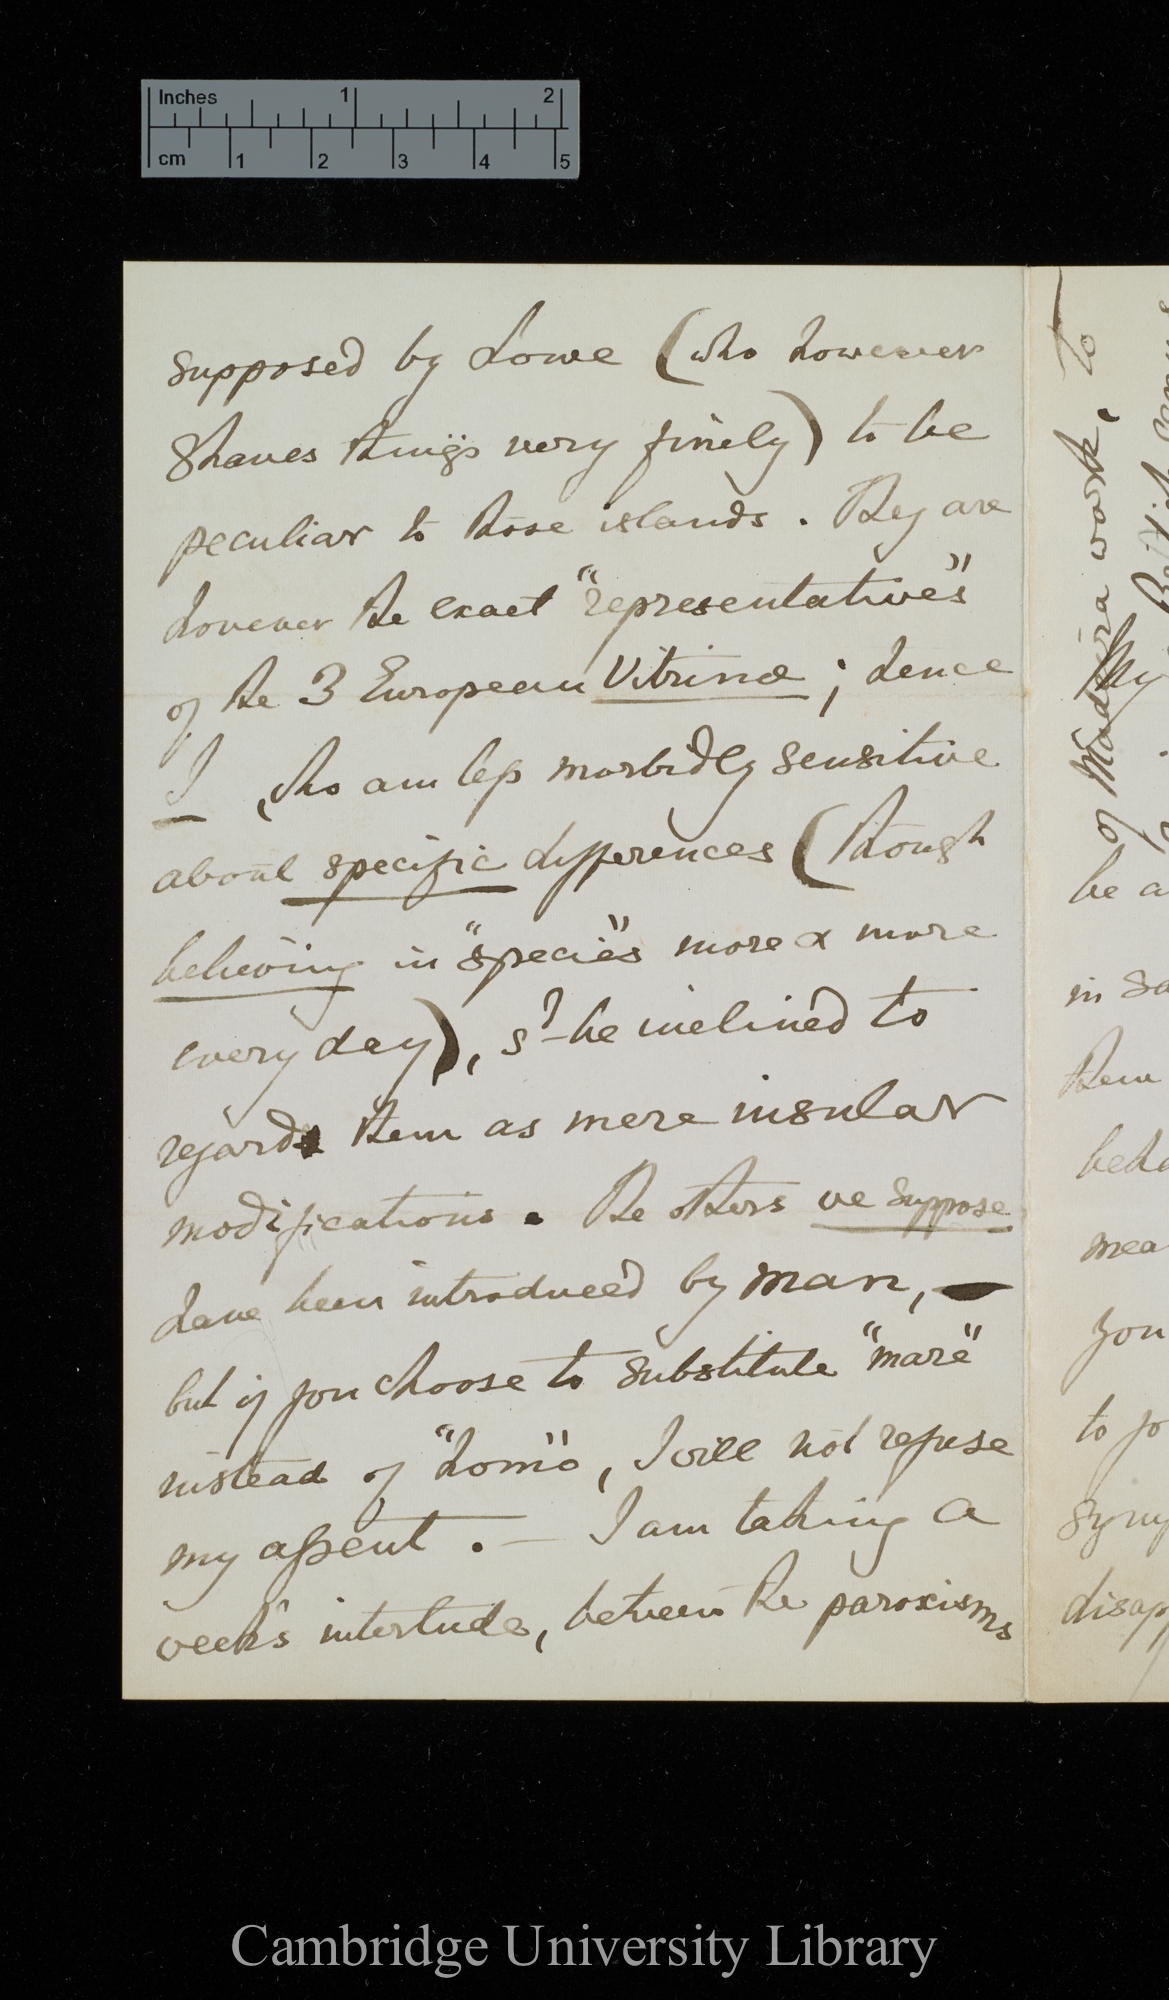 Inches 1 2
cm 1 2 3 4 5
supposed by Lowe (who however
shaves things very finely) to be
peculiar to those islands. They are
however the exact "representatives"
of the 3 European Vitrinæ; hence
I, who am less morbidly sensitive
about specific differences (though
believing in "species" more & more
every day), shd. be inclined to
regard them as mere insular
modifications. The others we suppose
have been introduced by man, —
but if you choose to substitute "mare"
instead of "homo", I will not refuse
my assent. — I am taking a
week's interlude, between the paroxisms
to
of Madeira work,
My
be a
in sa
them
beho
mea
you
to yo
syny
disapp
Cambridge University Library